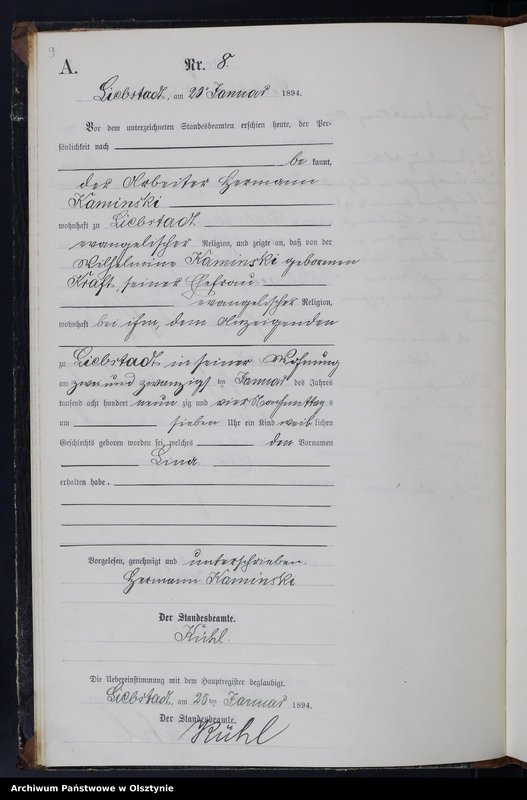 9
A.
Nr. 8.
Liebstadt, am 25ten Januar 1894.
Vor dem unterzeichneten Standesbeamten erschien heute, der Per-
sönlichkeit nach
be kannt,
der Arbeiter Hermann
Kaminski
wohnhaft zu Liebstadt
evangelischer Religion, und zeigte an, daß von der
Wilhelmine Kaminski geborenen
Kraft, seiner Ehefrau
evangelischer Religion,
wohnhaft bei ihm, dem Anzeigenden
zu Liebstadt in seiner Wohnung
am zwei und zwanzigsten Januar des Jahres
tausend acht hundert neun zig und vier Nachmittags
um sieben Uhr ein Kind weib lichen
Geschlechts geboren worden sei, welches den Vornamen
Lina
erhalten habe.
Vorgelesen, genehmigt und unterschrieben.
Hermann Kaminski
Der Standesbeamte.
Kühl.
Die Uebereinstimmung mit dem Hauptregister beglaubigt.
Liebstadt, am 25ten Januar 1894.
Der Standesbeamte.
Kühl
Archiwum Państwowe w Olsztynie